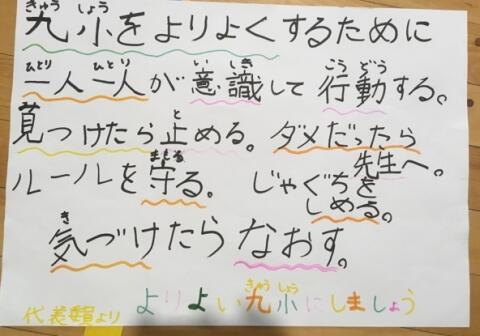 九小をよりよくするために
一人一人が意識して行動する。
見つけたら止める。ダメだったら
先生へ。
ルールを守る。じゃぐちを
しめる。
気づけたらなおす。
代表委員より よりよい九小にしましょう